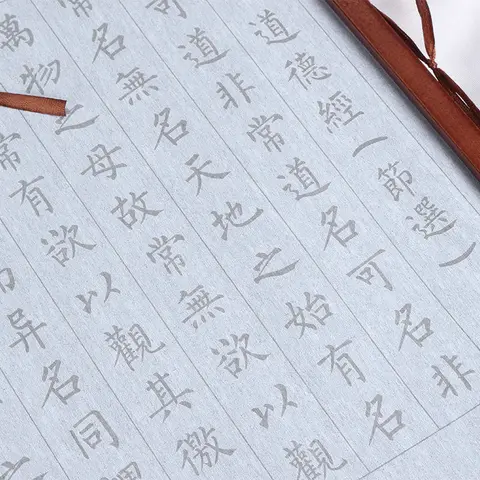 道德經︵節選︶
可道非常道名可名非
常名無名天地之始有名
萬物之母故常無欲以觀
常有欲以觀其徼
異名同